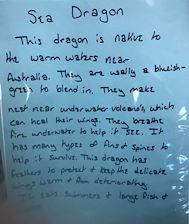 Sea Dragon
This dragon is native to
the warm waters near
Australia. They are usally a blueish-
green to blend in. They make
nest near underwater volcano's, which
can heal their wings. They breathe
fire underwater to help it see. It
has many types of fins & spines to
help it survive. This dragon has
feathers to protect & keep the delicate
wings warm & from deteriorating
It eats submarines & large fish &